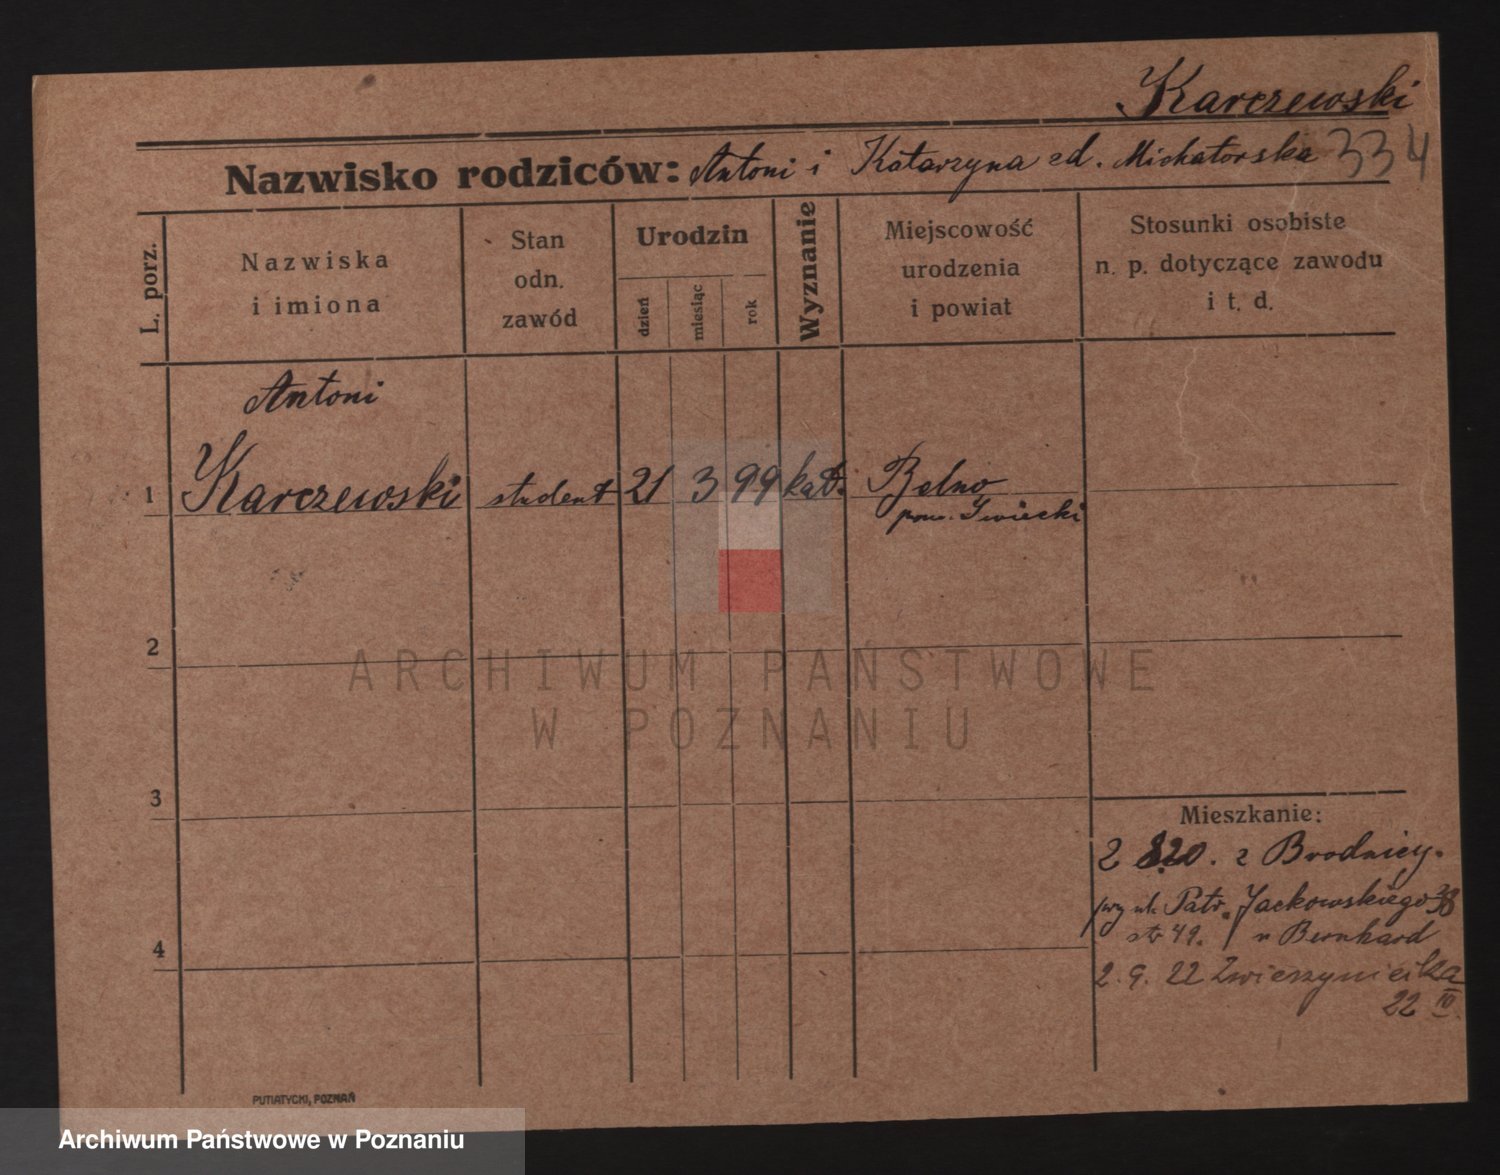 Karczewski
Nazwisko rodziców: Antoni i Katarzyna zd. Michatorska 334
L. porz.
Nazwiska
i imiona
Stan
odn.
zawód
Urodzin
dzień
miesiąc
rok
Wyznanie
Miejscowość
urodzenia
i powiat
Stosunki osobiste
n. p. dotyczące zawodu
i t. d.
Antoni
1 Karczewski student 21 3 99 kat. Belno
pow. Świecki
2
ARCHIWUM PAŃSTWOWE
W POZNANIU
3
Mieszkanie:
2 8.20. z Brodnicy.
ul. Patr. Jackowskiego 38
str 49. u Bernhard
4
2. 9. 22 Zwierzyniecka
22 IV.
PUTIATYCKI, POZNAŃ
Archiwum Państwowe w Poznaniu